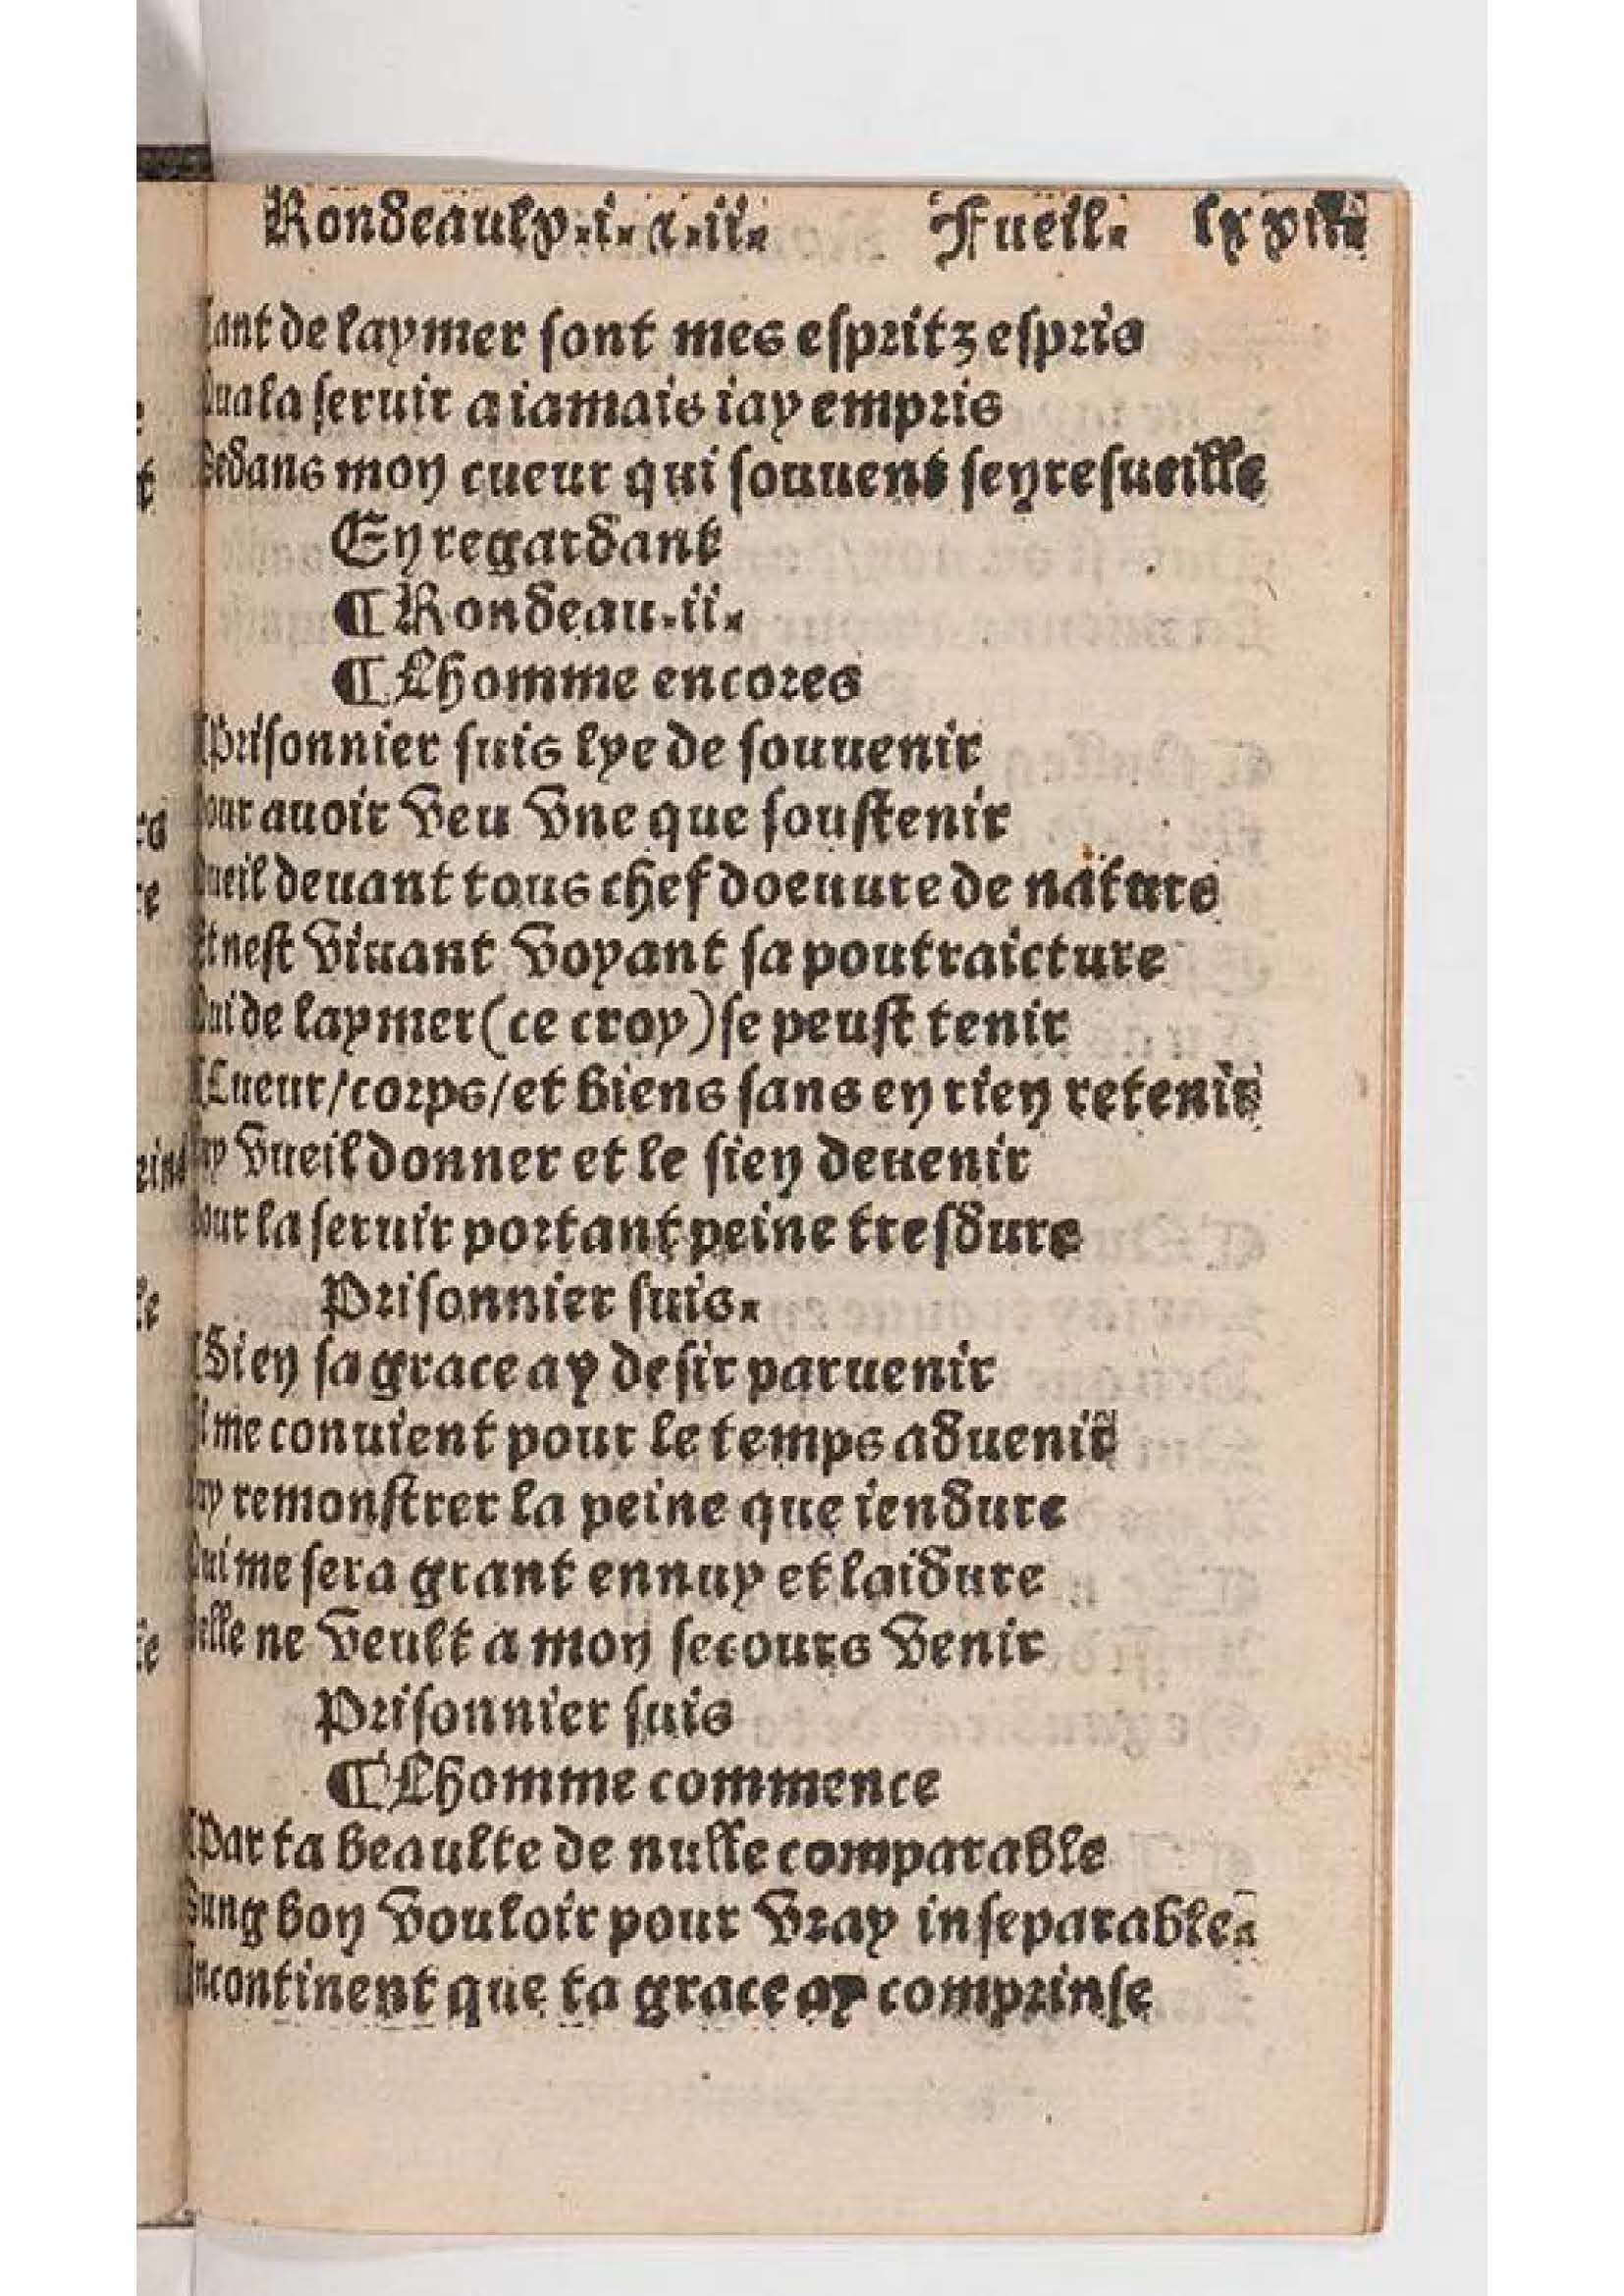 Rondeaulx.i. & .ii. Fueil. lxxiii
Tant de laymer sont mes espritz espris
Qua la seruir a iamais iay empris
Dedans mon cueur qui souuent sen resueille
En regardant
¶ Rondeau.ii.
¶ Lhomme encores
¶ Prisonnier suis lye de souuenir
Pour auoir veu vne que soustenir
Vueil deuant tous chef doeuure de nature
Et nest viuant voyant sa poutraicture
Qui de laymer (ce croy) se peust tenir
¶ Cueur/corps/et biens sans en rien retenir
Luy vueil donner et le sien deuenir
Pour la seruir portant peine tresdure
Prisonnier suis.
¶ Si en sa grace ay desir paruenir
Il me conuient pour le temps aduenir
Luy remonstrer la peine que iendure
Qui me sera grant ennuy et laidure
Selle ne veult a mon secours venir
Prisonnier suis
¶ Lhomme commence
¶ Par ta beaulte de nulle comparable
Dung bon vouloir pour vray inseparable.
Incontinent que ta grace ay comprinse